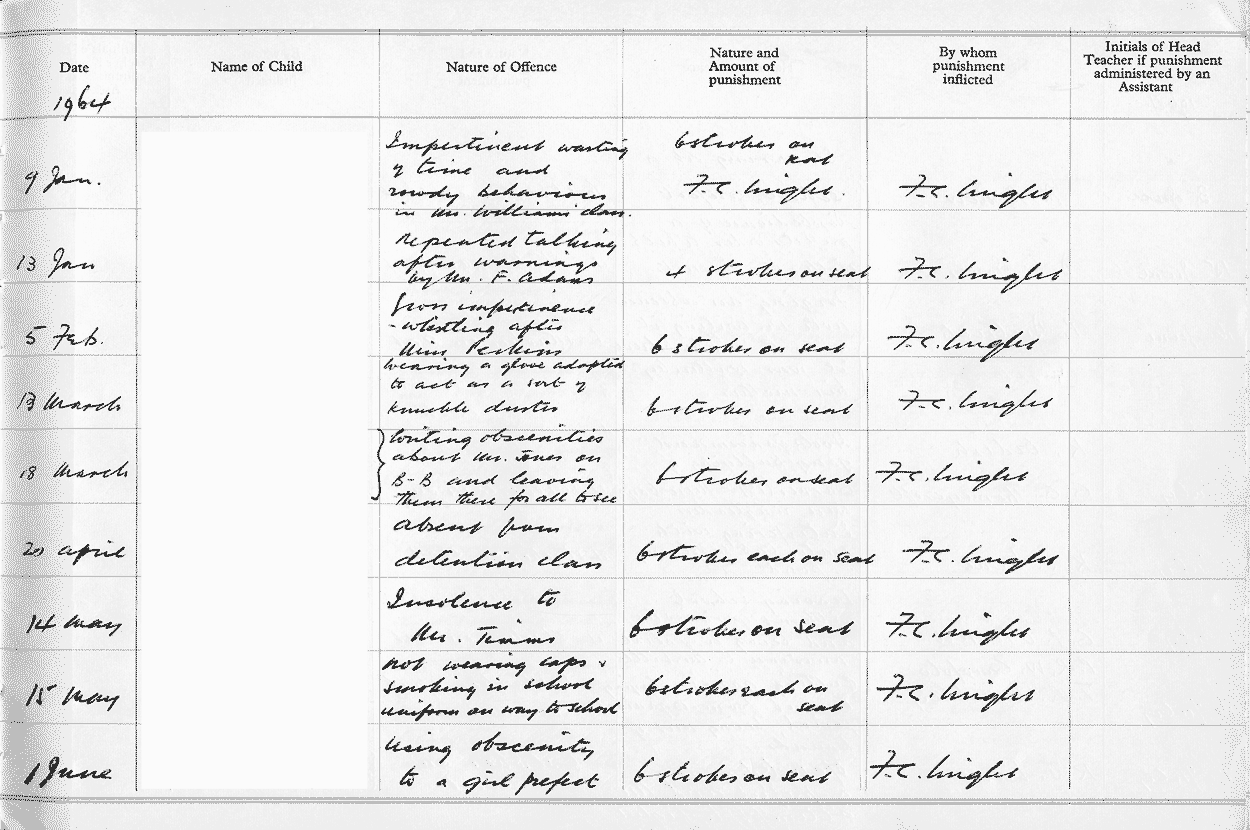 Date
Name of Child
Nature of Offence
Nature and
Amount of
punishment
By whom
punishment
inflicted
Initials of Head
Teacher if punishment
administered by an
Assistant
1964
9 Jan.
Impertinent wasting
of time and
rowdy behaviour
in Mr. Williams' class.
6 strokes on
seat
F.C.
F.C.
13 Jan
Repeated talking
after warnings
by Mr. F. Adams
4 strokes on seat
F.C.
5 Feb.
Gross impertinence
- whistling after
Miss Perkins
6 strokes on seat
F.C.
13 March
Wearing a glove adapted
to act as a sort of
knuckle duster
6 strokes on seat
F.C.
18 March
Writing obscenities
about Mr. Jones on
B-B and leaving
them there for all to see
6 strokes on seat
F.C.
april
absent from
detention class
6 strokes each on seat
F.C.
14 May
Insolence to
Mr. Timms
6 strokes on seat
F.C.
15 May
not wearing caps &
smoking in school
uniform on way to school
6 strokes each on
seat
F.C.
1 June
Using obscenity
to a girl prefect
6 strokes on seat
F.C.